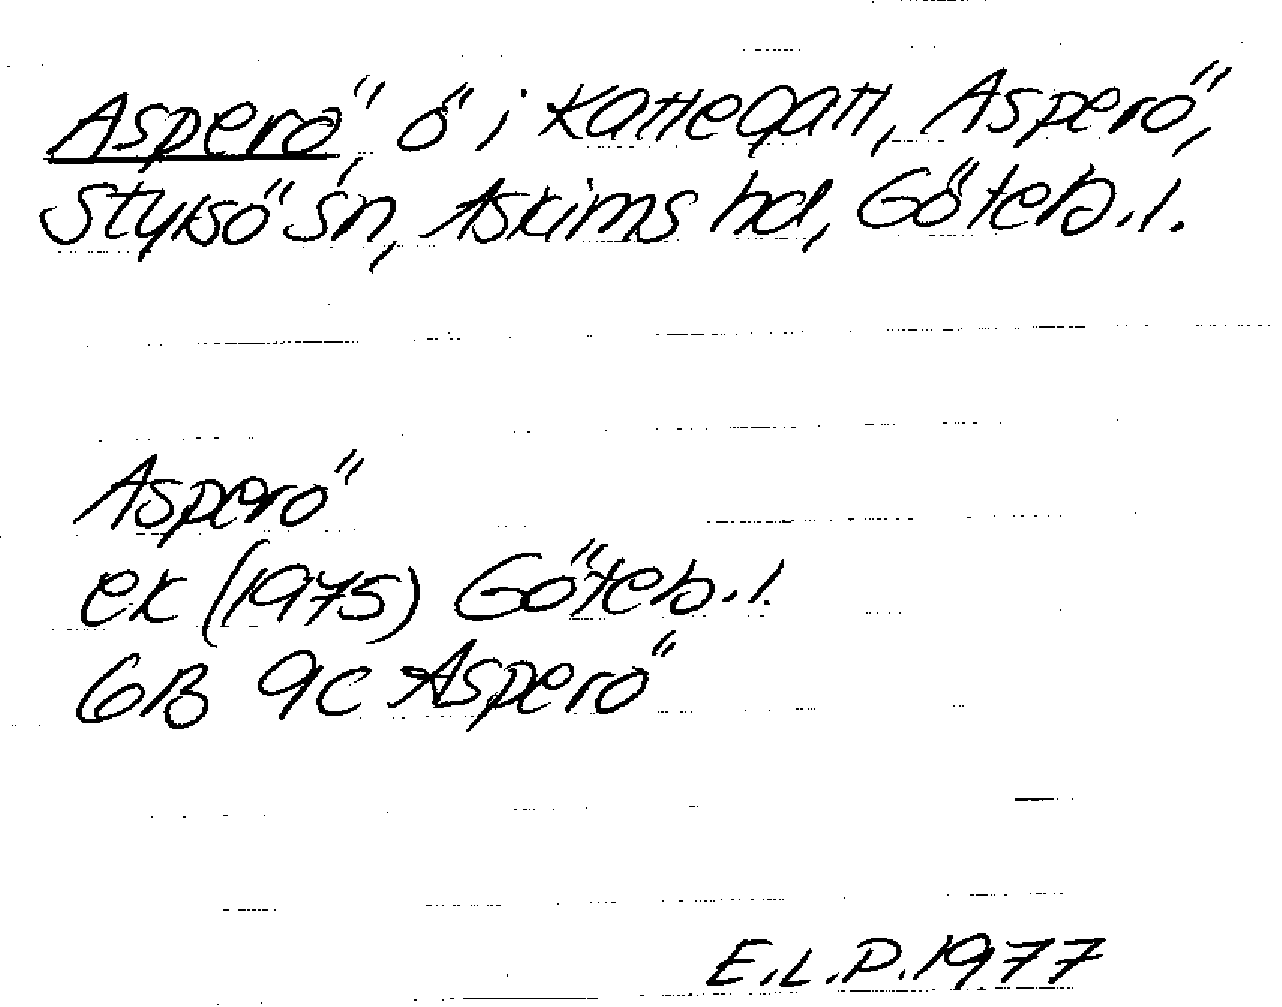 Asperö, ö i Kattegatt, Asperö,
Styrsö sn, Askims hd, Göteb.l.
Asperö
ek (1975) Göteb.l.
6B 9c Asperö
E.L.P. 1977